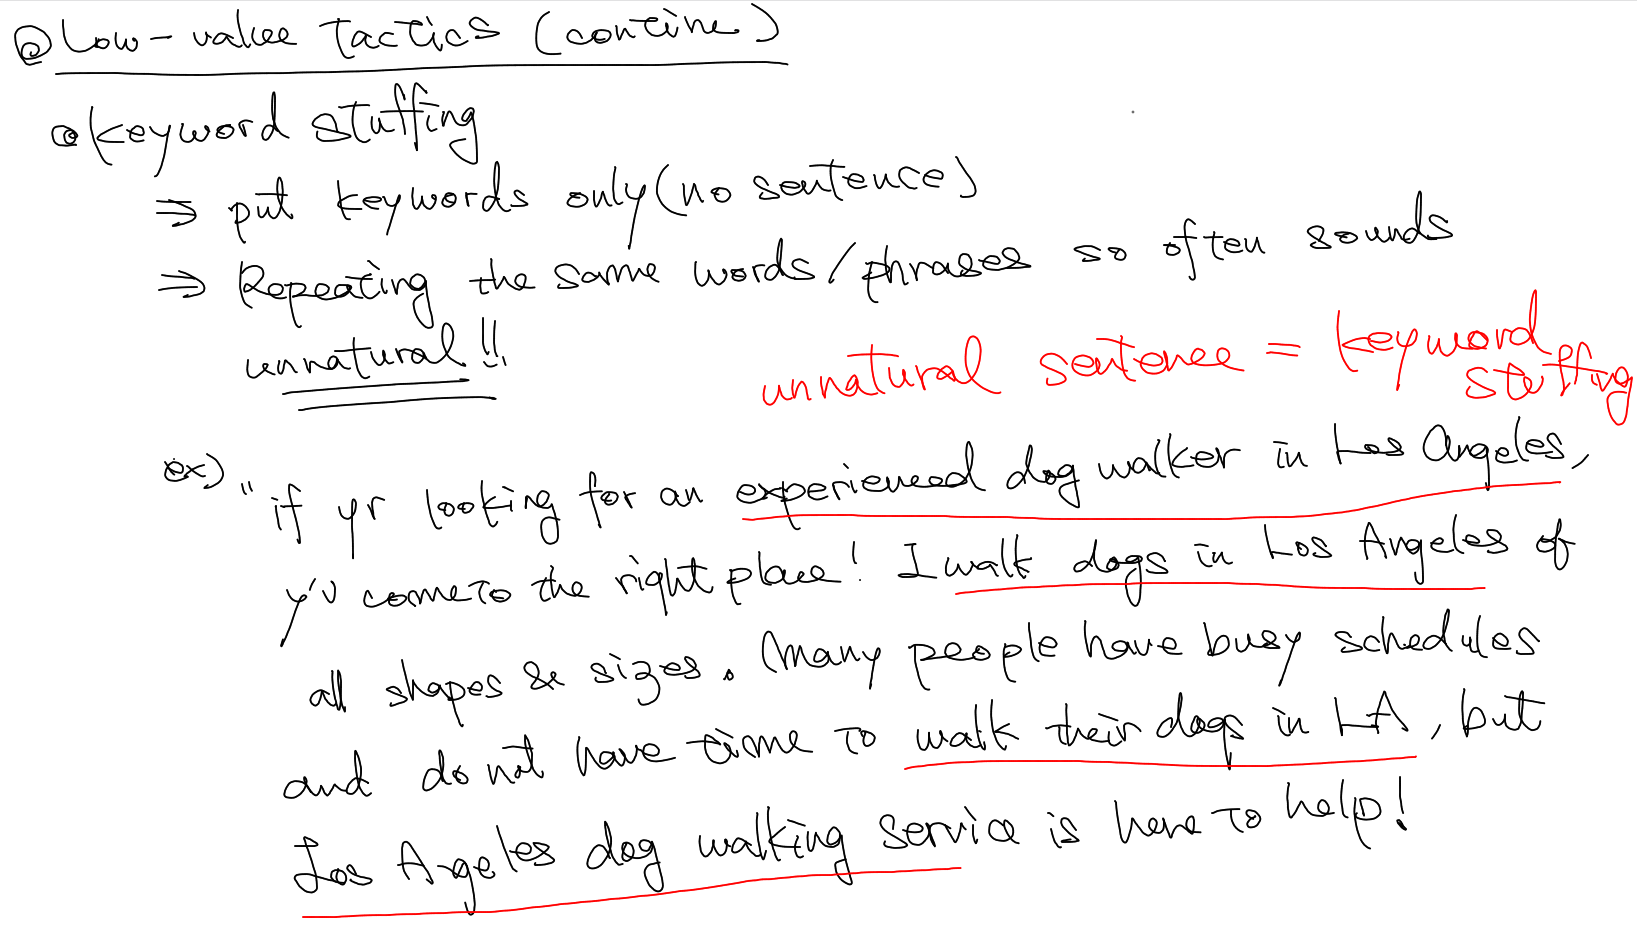 @ Low-value Tactics (contine)
@ keyword stuffing
⇒ put keywords only (no sentence)
⇒ Repeating the same words/phrases so often sounds
unnatural!!
unnatural sentence = keyword
stuffing
ex) "if yr looking for an experienced dog walker in Los Angeles,
y'v come to the right place! I walk dogs in Los Angeles of
all shapes & sizes. Many people have busy schedules
and do not have time to walk their dogs in LA, but
Los Angeles dog walking service is here to help!